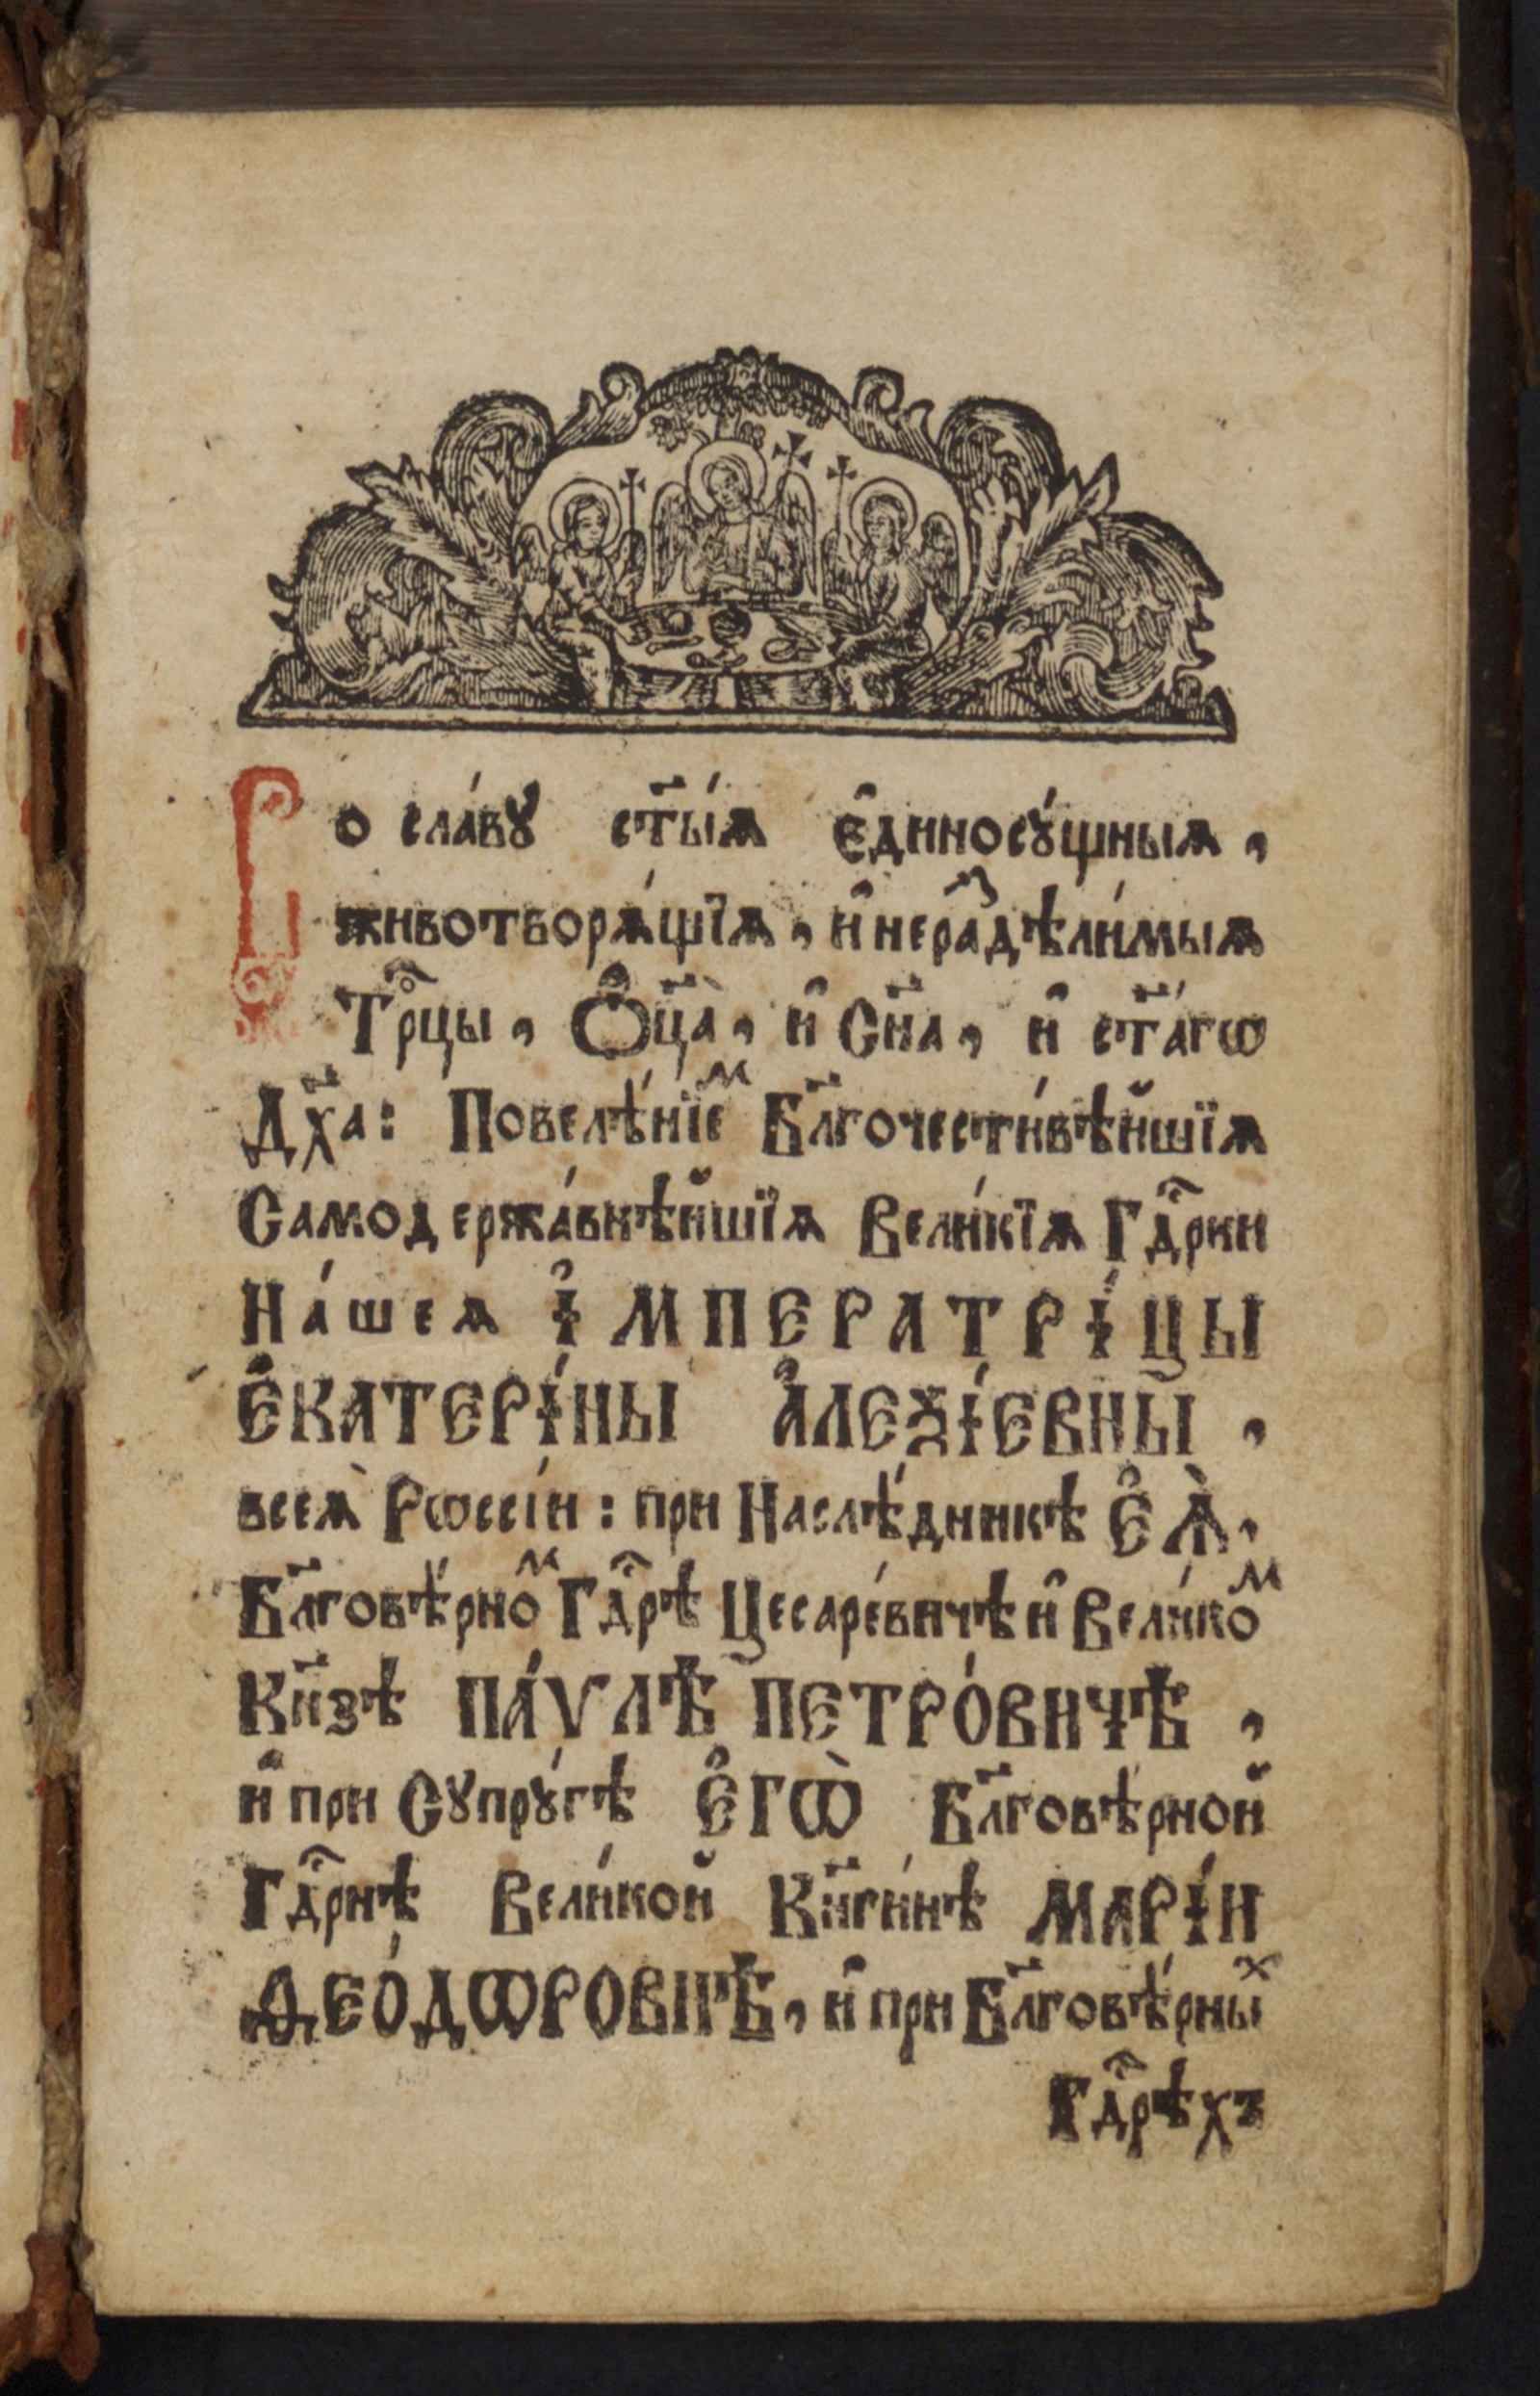 Во сла́вꙋ ст҃ы́ѧ є҆диносꙋ́щныѧ,
животворѧ́щїѧ, и҆ нераⷥдѣли́мыѧ
Трⷪ҇цы, Ѻ҆ц҃а̀, и҆ Сн҃а, и҆ ст҃а́гѡ
Дх҃а: Повелѣ́нїеⷨ Бл҃гочести́вѣйшїѧ
Самодержа́внѣйшїѧ Вели́кїѧ Гдⷭ҇рни
На́шеѧ І҆МПЕРАТРІ́ЦЫ
Е҆КАТЕРІ́НЫ А҆ЛЕѮІ́ЕВНЫ,
всеѧ̀ Рѡссі́и: при Наслѣ́дникѣ Е҆Ѧ̀,
Бл҃говѣ́рноⷨ Гдⷭ҇рѣ Цесаре́вичѣ и҆ Вели́коⷨ
Кн҃зѣ ПА́ѴЛѢ ПЕТРО́ВИЧѢ,
и҆ при Сꙋпрꙋ́гѣ Е҆ГѠ̀ Бл҃говѣ́рной
Гдⷭ҇рнѣ Вели́кой Кн҃ги́нѣ МАРІ́И
ѲЕО́ДѠРОВНѢ, и҆ при Бл҃говѣ́рныⷯ
Гдⷭ҇рѣхъ